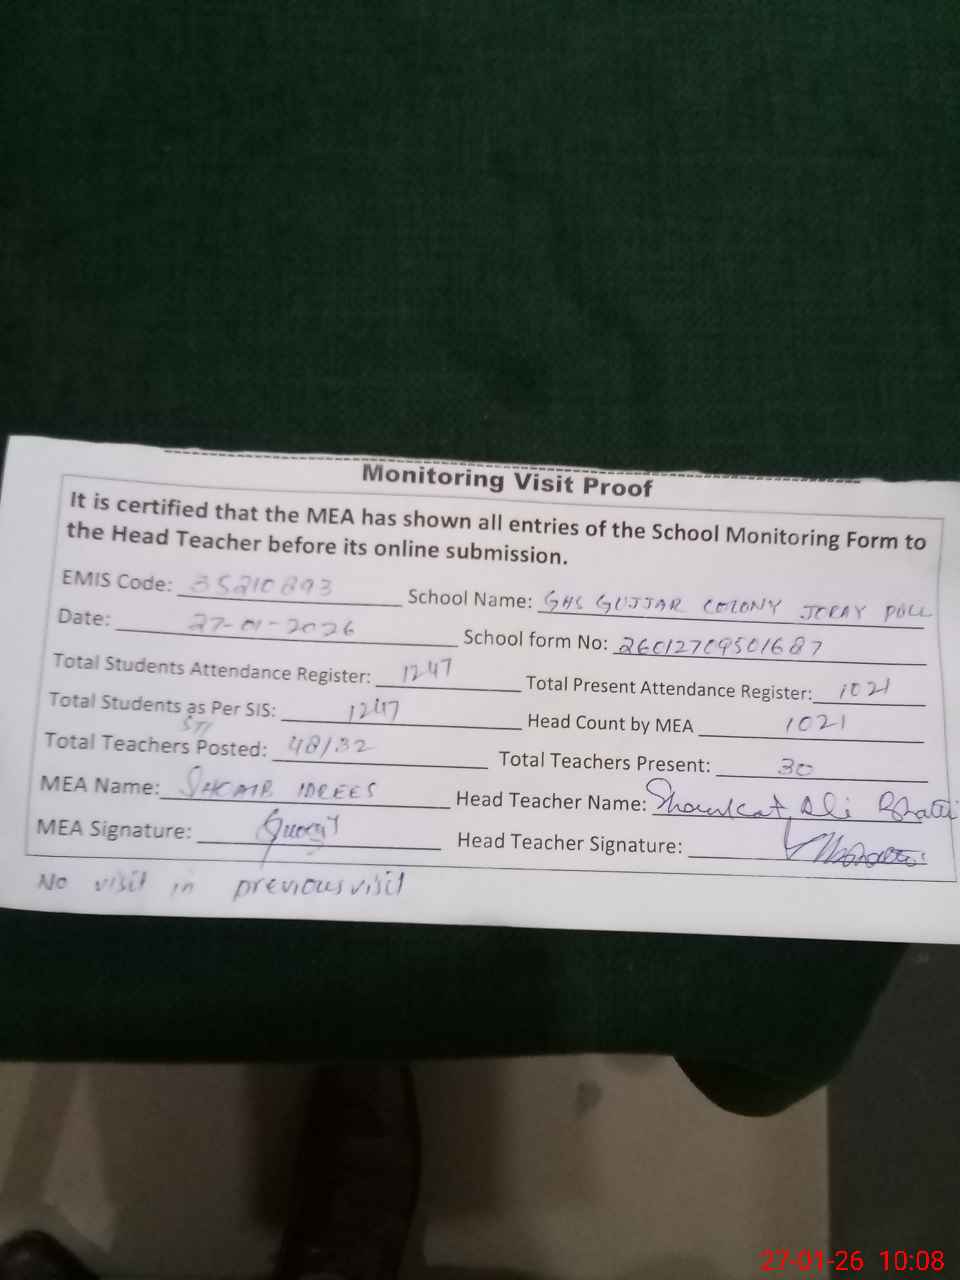 Monitoring Visit Proof
It is certified that the MEA has shown all entries of the School Monitoring Form to
the Head Teacher before its online submission.
EMIS Code: 35210893 School Name: GHS GUJJAR COLONY JORAY PULL
Date: 27-01-2026 School form No: 26012709501687
Total Students Attendance Register: 1247 Total Present Attendance Register: 1021
Total Students as Per SIS: 1247 Head Count by MEA 1021
STI
Total Teachers Posted: 48/32 Total Teachers Present: 30
MEA Name: SHOAIB IDREES Head Teacher Name: Showkat Ali Bhatti
MEA Signature: Head Teacher Signature:
No visit in previous visit
27-01-26 10:08